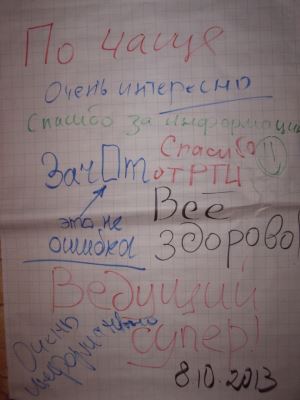 По чаще
Очень интересно
Спасибо за информацию
Спасибо!
от РТЦ
ЗачОт
это не
ошибка
Всё
здорово!
Ведущий
супер!
Очень
информативно
8.10.2013